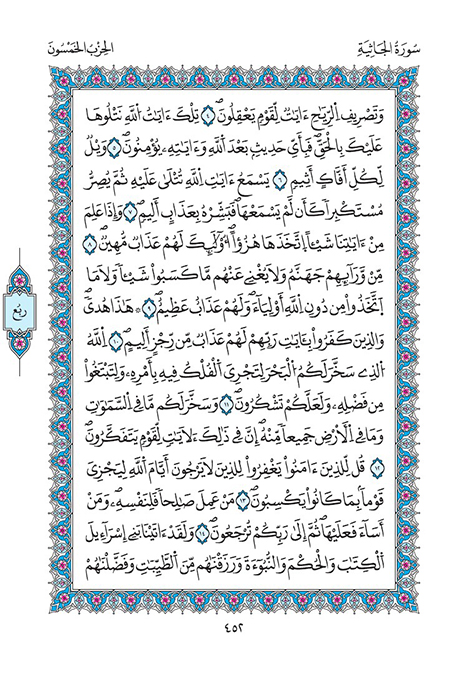 سُورَةُ الْجَاثِيَةِ
الحِزْبُ الخَمْسُونَ
وَتَصْرِيفِ اِ۬لرِّيَٰحِ ءَايَٰتٞ لِّقَوْمٖ يَعْقِلُونَۖ ٤ تِلْكَ ءَايَٰتُ اُ۬للَّهِ نَتْلُوهَا
عَلَيْكَ بِالْحَقِّۖ فَبِأَيِّ حَدِيثِۢ بَعْدَ اَ۬للَّهِ وَءَايَٰتِهِۦ يُؤْمِنُونَۖ ٥ وَيْلٞ
لِّكُلِّ أَفَّاكٍ أَثِيمٖ ٦ يَسْمَعُ ءَايَٰتِ اِ۬للَّهِ تُتْلَىٰ عَلَيْهِ ثُمَّ يُصِرُّ
مُسْتَكْبِراٗ كَأَن لَّمْ يَسْمَعْهَاۖ فَبَشِّرْهُ بِعَذَابٍ أَلِيمٖۖ ٧ وَإِذَا عَلِمَ
مِنَ ءَايَٰتِنَا شَيْـٔاً اِ۪تَّخَذَهَا هُزُؤاًۖ ا۟وْلَٰٓئِكَ لَهُمْ عَذَابٞ مُّهِينٞۖ ٨
مِّنْ وَّرَآئِهِمْ جَهَنَّمُ وَلَا يُغْنِے عَنْهُم مَّا كَسَبُواْ شَيْـٔاٗ وَلَا مَا
اَ۪تَّخَذُواْ مِن دُونِ اِ۬للَّهِ أَوْلِيَآءَۖ وَلَهُمْ عَذَابٌ عَظِيمٌۖ ٩ ۞ هَٰذَا هُديٗۖ
وَالذِينَ كَفَرُواْ بِـَٔايَٰتِ رَبِّهِمْ لَهُمْ عَذَابٞ مِّن رِّجْزٍ أَلِيمٍۖ ١٠ اِ۬للَّهُ
اُ۬لذِے سَخَّرَ لَكُمُ اُ۬لْبَحْرَ لِتَجْرِيَ اَ۬لْفُلْكُ فِيهِ بِأَمْرِهِۦ وَلِتَبْتَغُواْ
مِن فَضْلِهِۦ وَلَعَلَّكُمْ تَشْكُرُونَۖ ١١ وَسَخَّرَ لَكُم مَّا فِے اِ۬لسَّمَٰوَٰتِ
وَمَا فِے اِ۬لَارْضِ جَمِيعاٗ مِّنْهُۖ إِنَّ فِے ذَٰلِكَ ءَلَايَٰتٖ لِّقَوْمٖ يَتَفَكَّرُونَۖ
١٢ قُل لِّلذِينَ ءَامَنُواْ يَغْفِرُواْ لِلذِينَ لَا يَرْجُونَ أَيَّامَ اَ۬للَّهِ لِيَجْزِيَ
قَوْماَۢ بِمَا كَانُواْ يَكْسِبُونَۖ ١٣ مَنْ عَمِلَ صَٰلِحاٗ فَلِنَفْسِهِۦۖ وَمَنَ
اَسَآءَ فَعَلَيْهَاۖ ثُمَّ إِلَىٰ رَبِّكُمْ تُرْجَعُونَۖ ١٤ وَلَقَدَ اٰتَيْنَا بَنِے إِسْرَآءِيلَ
اَ۬لْكِتَٰبَ وَالْحُكْمَ وَالنُّبُوٓءَةَ وَرَزَقْنَٰهُم مِّنَ اَ۬لطَّيِّبَٰتِ وَفَضَّلْنَٰهُمْ
رُبُع
٤٥٢